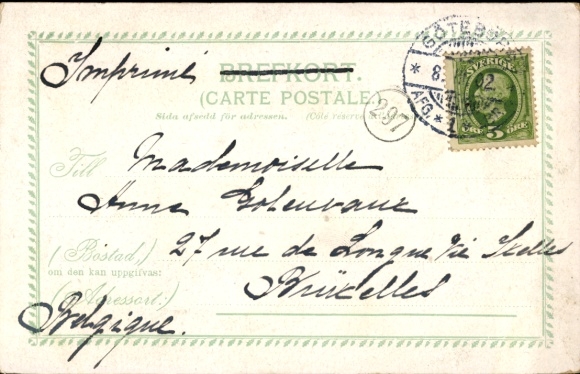 GÖTEBORG
* 8. 02
AFG. * 1
SVERIGE
5
ÖRE ÖRE
Imprimé BREFKORT.
(CARTE POSTALE)
Sida afsedd för adressen. (Côté réservé
297
Till Mademoiselle
Anna
(Bostad,) 27 rue de Longue Vie Ixelles
om den kan uppgifvas:
Bruxelles
(Adressort:)
Belgique.